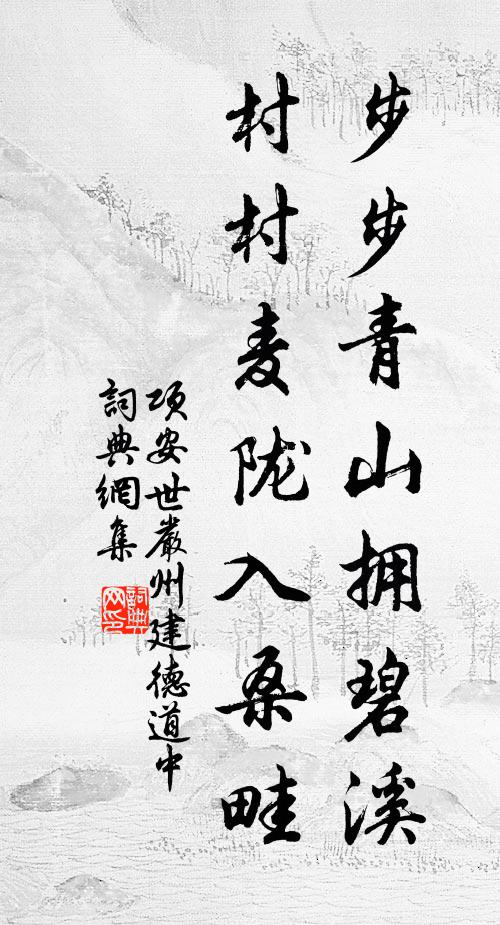 步步青山拥碧溪
村村麦陇入桑畦
项安世嚴州建德道中
詞典網集
詞典
网印